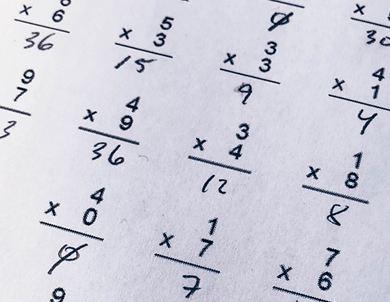 × 6
36
5
× 3
15
0
×
30
9
7
3
4
× 9
36
3
× 3
9
4
× 1
4
3
× 4
12
1
× 8
8
4
× 0
0
1
× 7
7
7
× 6
9